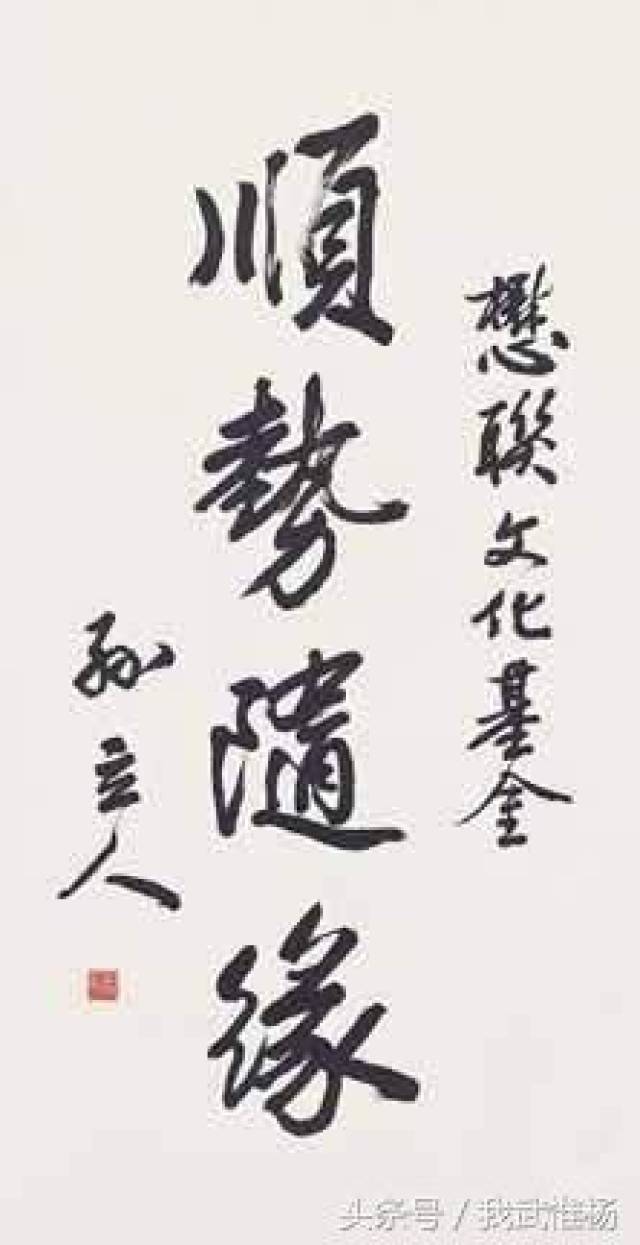 懋聯文化基金
順勢隨緣
孫立人
头条号/我武惟杨